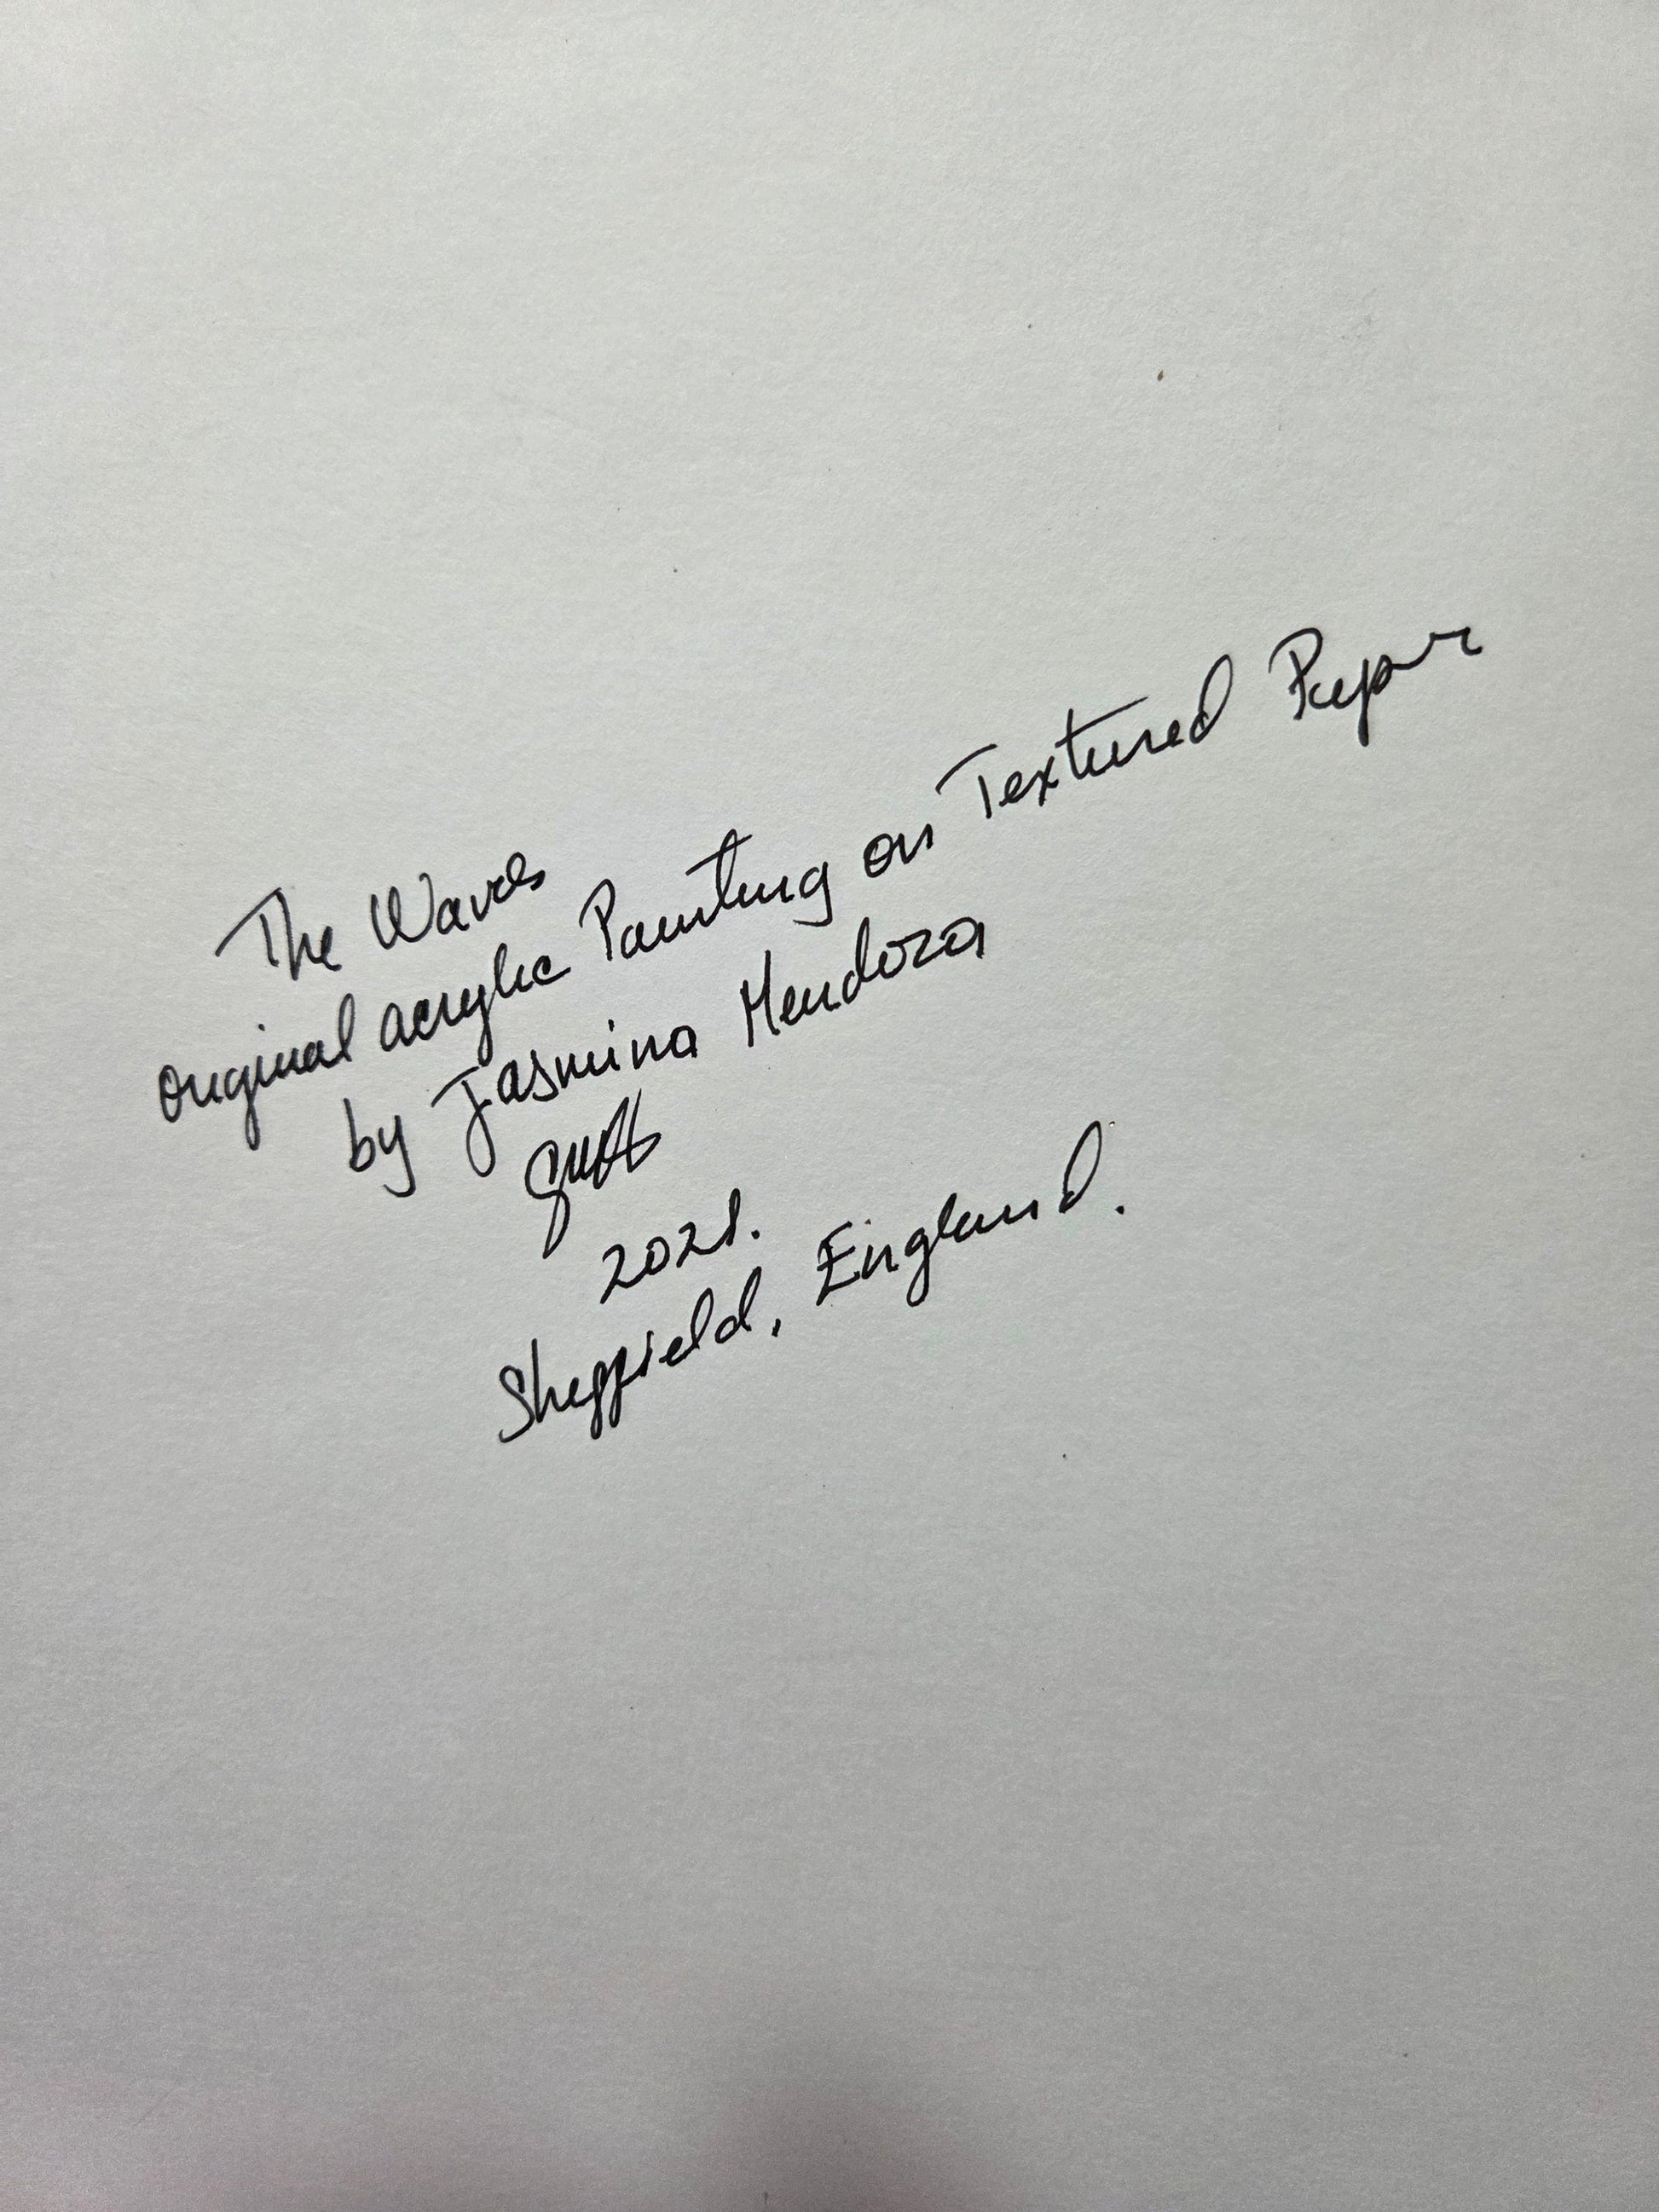 The Waves
original acrylic Painting on Textured Paper
by Jasmina Mendoza
2021.
Sheffield, England.